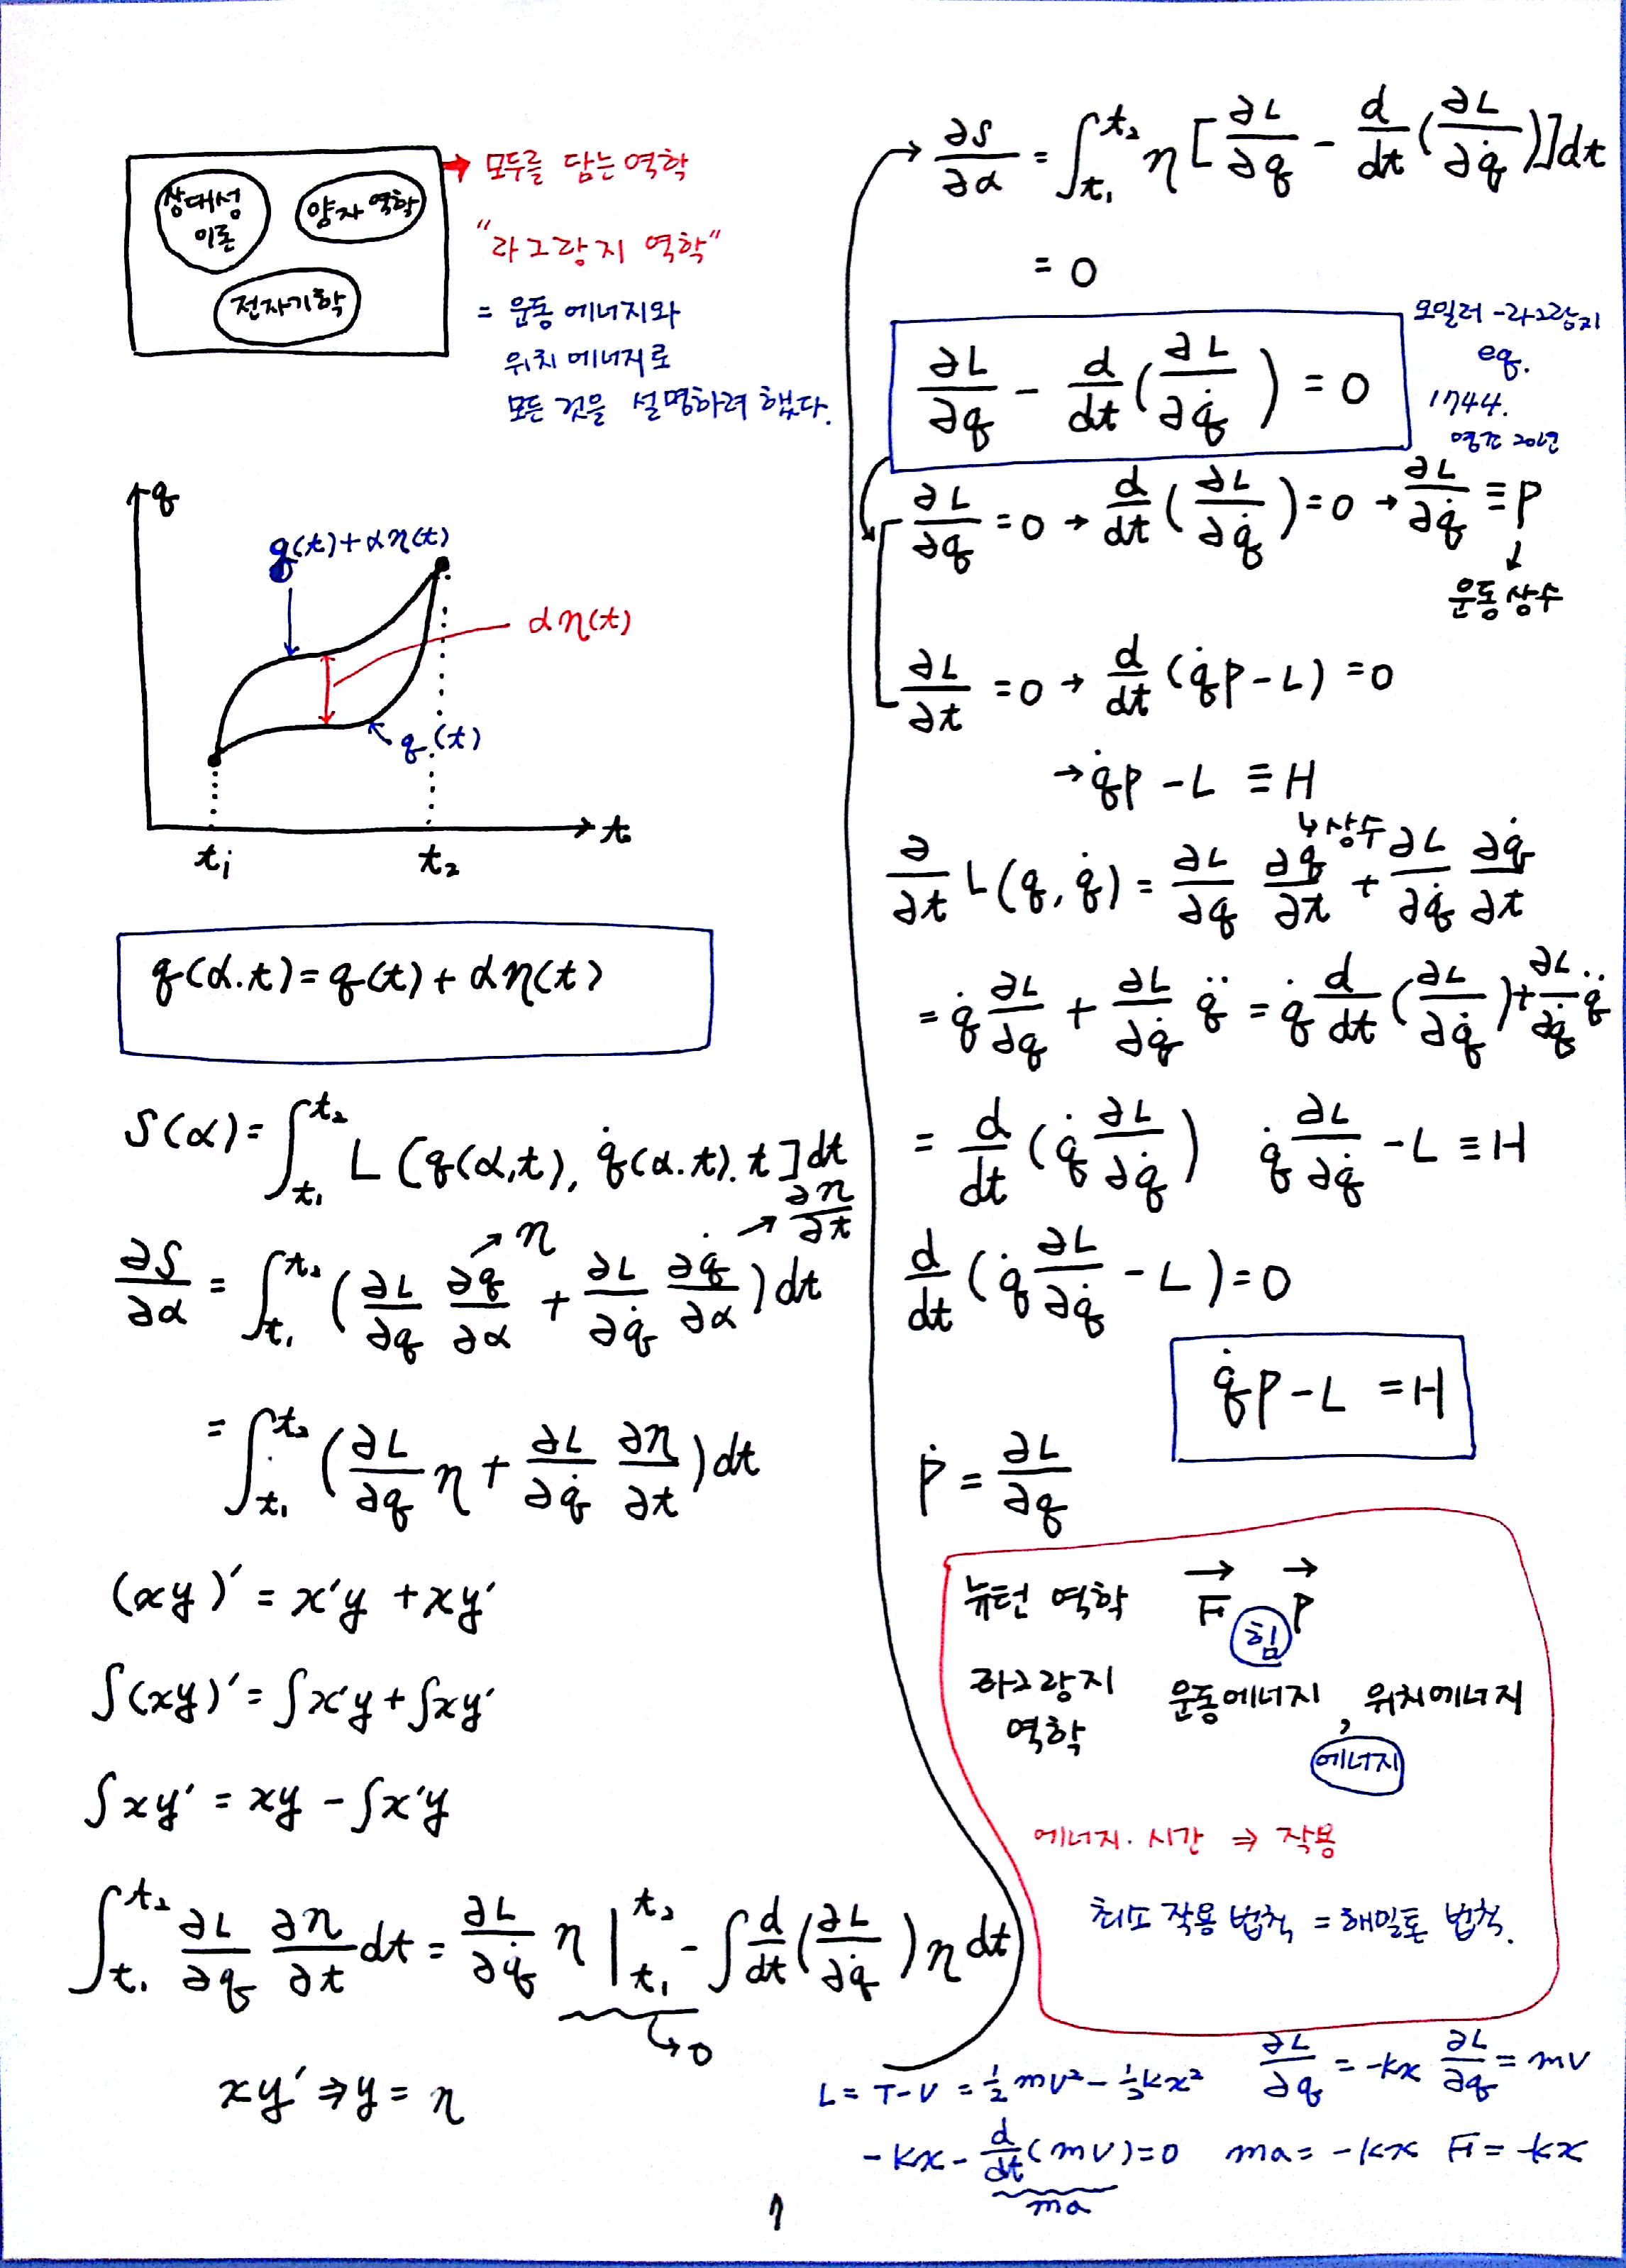 상대성
이론
양자 역학
전자기학
→ 모두를 담는 역학
"라그랑지 역학"
= 운동 에너지와
위치 에너지로
모든 것을 설명하려 했다.
q
q(t)+αη(t)
αη(t)
q(t)
t
t₁ t₂
q(α.t)=q(t)+αη(t)
S(α)=∫_{t₁}^{t₂} L[q(α,t), q̇(α.t).t]dt
→η →∂η/∂t
∂S/∂α = ∫_{t₁}^{t₂} (∂L/∂q ∂q/∂α + ∂L/∂q̇ ∂q̇/∂α)dt
= ∫_{t₁}^{t₂} (∂L/∂q η + ∂L/∂q̇ ∂η/∂t)dt
(xy)' = x'y + xy'
∫(xy)' = ∫x'y + ∫xy'
∫xy' = xy - ∫x'y
∫_{t₁}^{t₂} ∂L/∂q̇ ∂η/∂t dt = ∂L/∂q̇ η |_{t₁}^{t₂} - ∫ d/dt(∂L/∂q̇)η dt
→0
xy' ⇒ y = η
→ ∂S/∂α = ∫_{t₁}^{t₂} η[∂L/∂q - d/dt(∂L/∂q̇)]dt
= 0
∂L/∂q - d/dt(∂L/∂q̇) = 0
오일러-라그랑지
eq.
1744.
영조 20년
∂L/∂q = 0 → d/dt(∂L/∂q̇) = 0 → ∂L/∂q̇ ≡ P
↓
운동 상수
∂L/∂t = 0 → d/dt(q̇p - L) = 0
→ q̇p - L ≡ H
↳상수
∂/∂t L(q, q̇) = ∂L/∂q ∂q/∂t + ∂L/∂q̇ ∂q̇/∂t
= q̇ ∂L/∂q + ∂L/∂q̇ q̈ = q̇ d/dt(∂L/∂q̇) + ∂L/∂q̇ q̈
= d/dt(q̇ ∂L/∂q̇) q̇ ∂L/∂q̇ - L ≡ H
d/dt(q̇ ∂L/∂q̇ - L) = 0
q̇p - L = H
ṗ = ∂L/∂q
뉴턴 역학 F→ P→
힘
라그랑지 운동에너지, 위치에너지
역학
에너지
에너지·시간 ⇒ 작용
최소 작용 법칙 = 해밀톤 법칙.
L = T-V = ½mv² - ½kx² ∂L/∂q = -kx ∂L/∂q̇ = mv
-kx - d/dt(mv) = 0 ma = -kx F = -kx
ma
1